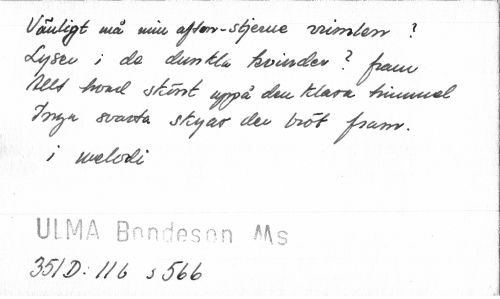 Vänligt må min afton-stjerne vrimlen ?
Lyser i de dunkla kvinder ? fram
Allt hvad skönt uppå den klara himmel
Inga svarta skyar der bröt fram.
i melodi
ULMA Bondeson Ms
351D: 116 s 566